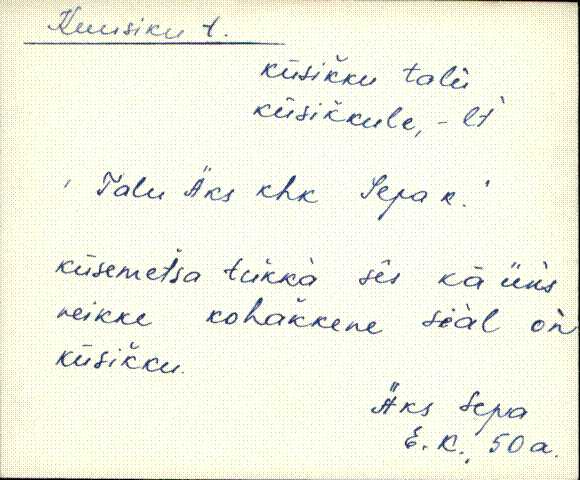 Kuusiku t.
kūsikku talū
kūsikkule, - lt
' Talu Äks khk Sepa k.'
kūsemetsa tükkà sēs kä üüs
neikke kohakkene siäl òn
kūsikku.
Äks Sepa
E. K., 50 a.